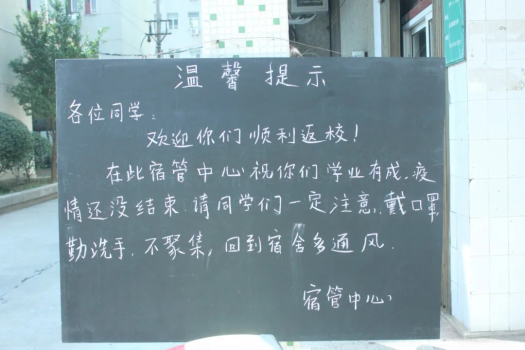 温馨提示
各位同学:
欢迎你们顺利返校!
在此宿管中心祝你们学业有成,疫
情还没结束.请同学们一定注意,戴口罩
勤洗手,不聚集,回到宿舍多通风.
宿管中心